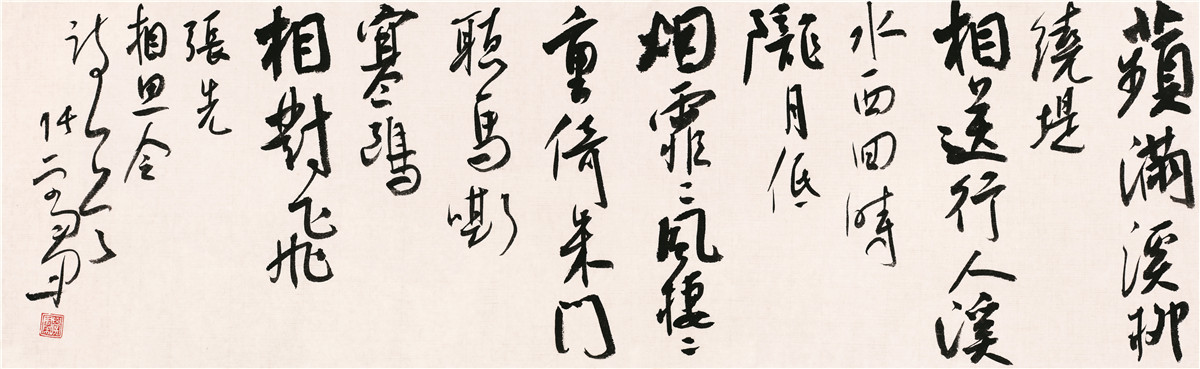 蘋滿溪柳
繞堤
相送行人溪
水西回時
隴月低
烟霏〻風棲〻
重倚朱門
聽馬嘶
寒鷗
相對飛
張先
相思令
詩